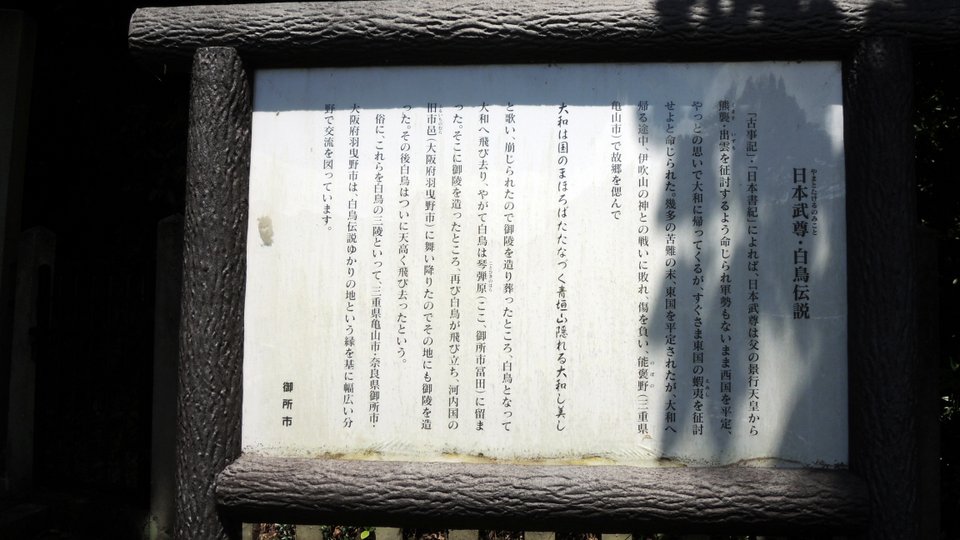 日本武尊・白鳥伝説
やまとたけるのみこと
『古事記』・『日本書紀』によれば、日本武尊は父の景行天皇から
熊襲・出雲を征討するよう命じられ軍勢もないまま西国を平定、
やっとの思いで大和に帰ってくるが、すぐさま東国の蝦夷を征討
せよと命じられた。幾多の苦難の末、東国を平定されたが、大和へ
帰る途中、伊吹山の神との戦いに敗れ、傷を負い、能褒野(三重県
亀山市)で故郷を偲んで
大和は国のまほろばたたなづく青垣山隠れる大和し美し
と歌い、崩じられたので御陵を造り葬ったところ、白鳥となって
大和へ飛び去り、やがて白鳥は琴弾原(ここ、御所市冨田)に留ま
った。そこに御陵を造ったところ、再び白鳥が飛び立ち、河内国の
旧市邑(大阪府羽曳野市)に舞い降りたのでその地にも御陵を造
った。その後白鳥はついに天高く飛び去ったという。
俗に、これらを白鳥の三陵といって、三重県亀山市・奈良県御所市・
大阪府羽曳野市は、白鳥伝説ゆかりの地という縁を基に幅広い分
野で交流を図っています。
御所市